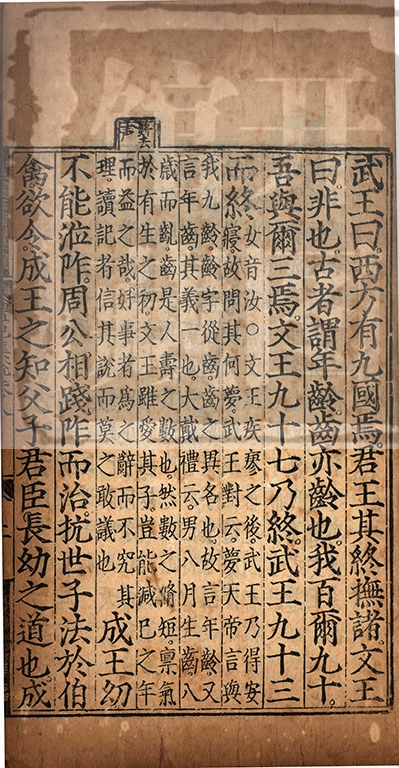 武王曰。西方有九國焉。君王其終撫諸。文王
曰。非也。古者謂年齡。齒亦齡也。我百爾九十。
吾與爾三焉。文王九十七乃終。武王九十三
而終。
女音汝○文王疾瘳之後武王乃得安
寢故問其何夢武王對云夢天帝言與
我九齡齡字從齒齒之異名也故言年齡又
言年齒其義一也大戴禮云男八月生齒八
歲而齔齒是人壽之數也然數之脩短稟氣
於有生之初文王雖愛其子豈能減己之年
而益之哉好事者爲之辭而不究其
理讀記者信其說而莫之敢議也
成王幼
不能涖阼。周公相踐阼而治。抗世子法於伯
禽。欲令成王之知父子君臣長幼之道也。成